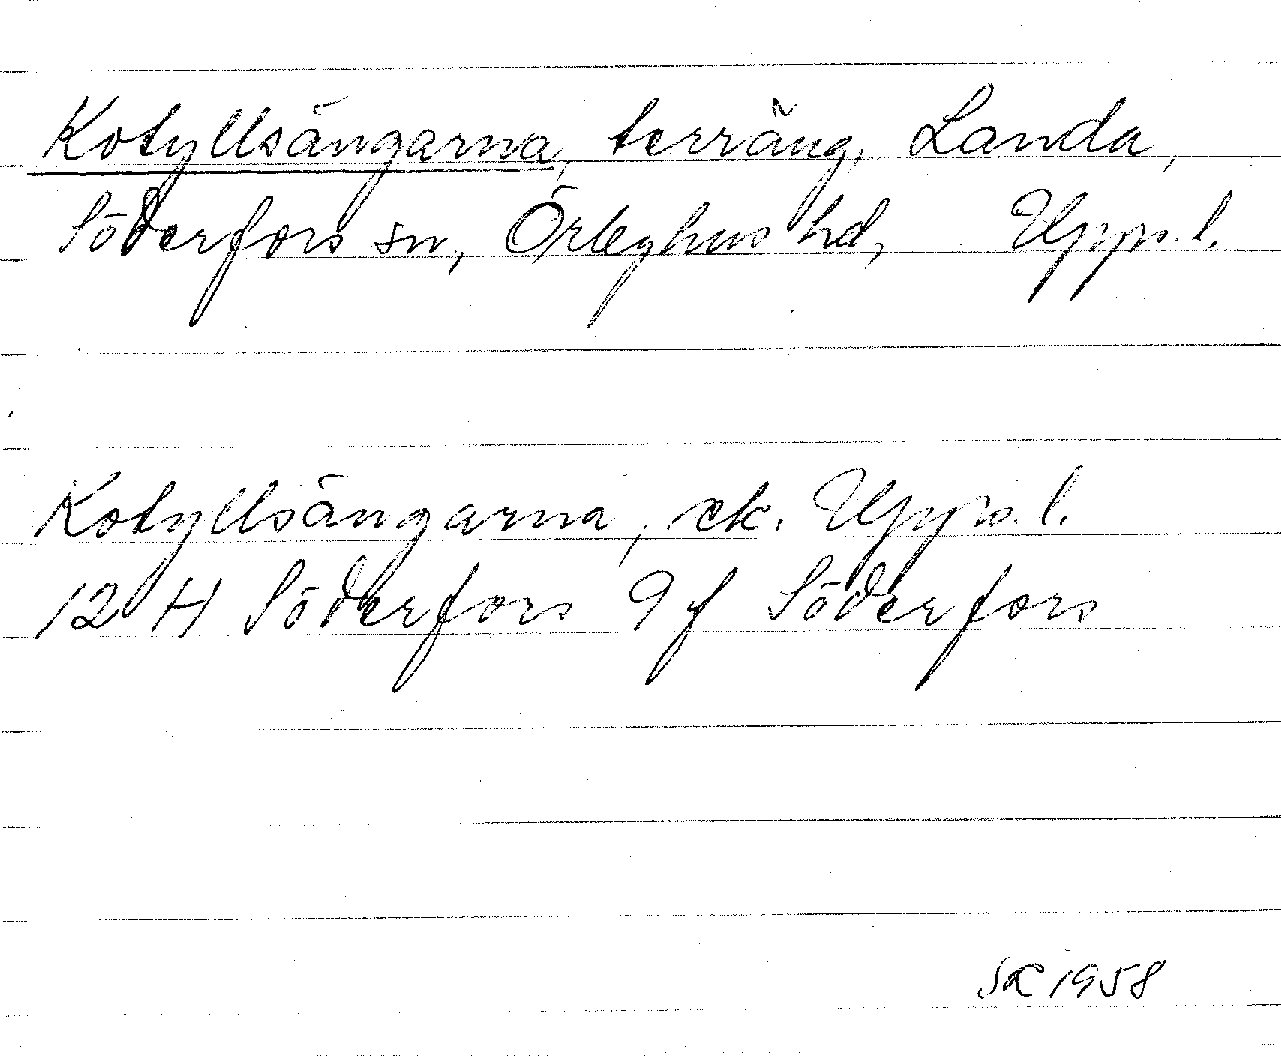 Kotyllsängarna, terräng, Landa,
Söderfors sn, Örbyhus hd, Upps. l.
Kotyllsängarna, ek. Upps. l.
12 H Söderfors 9 f Söderfors
1958